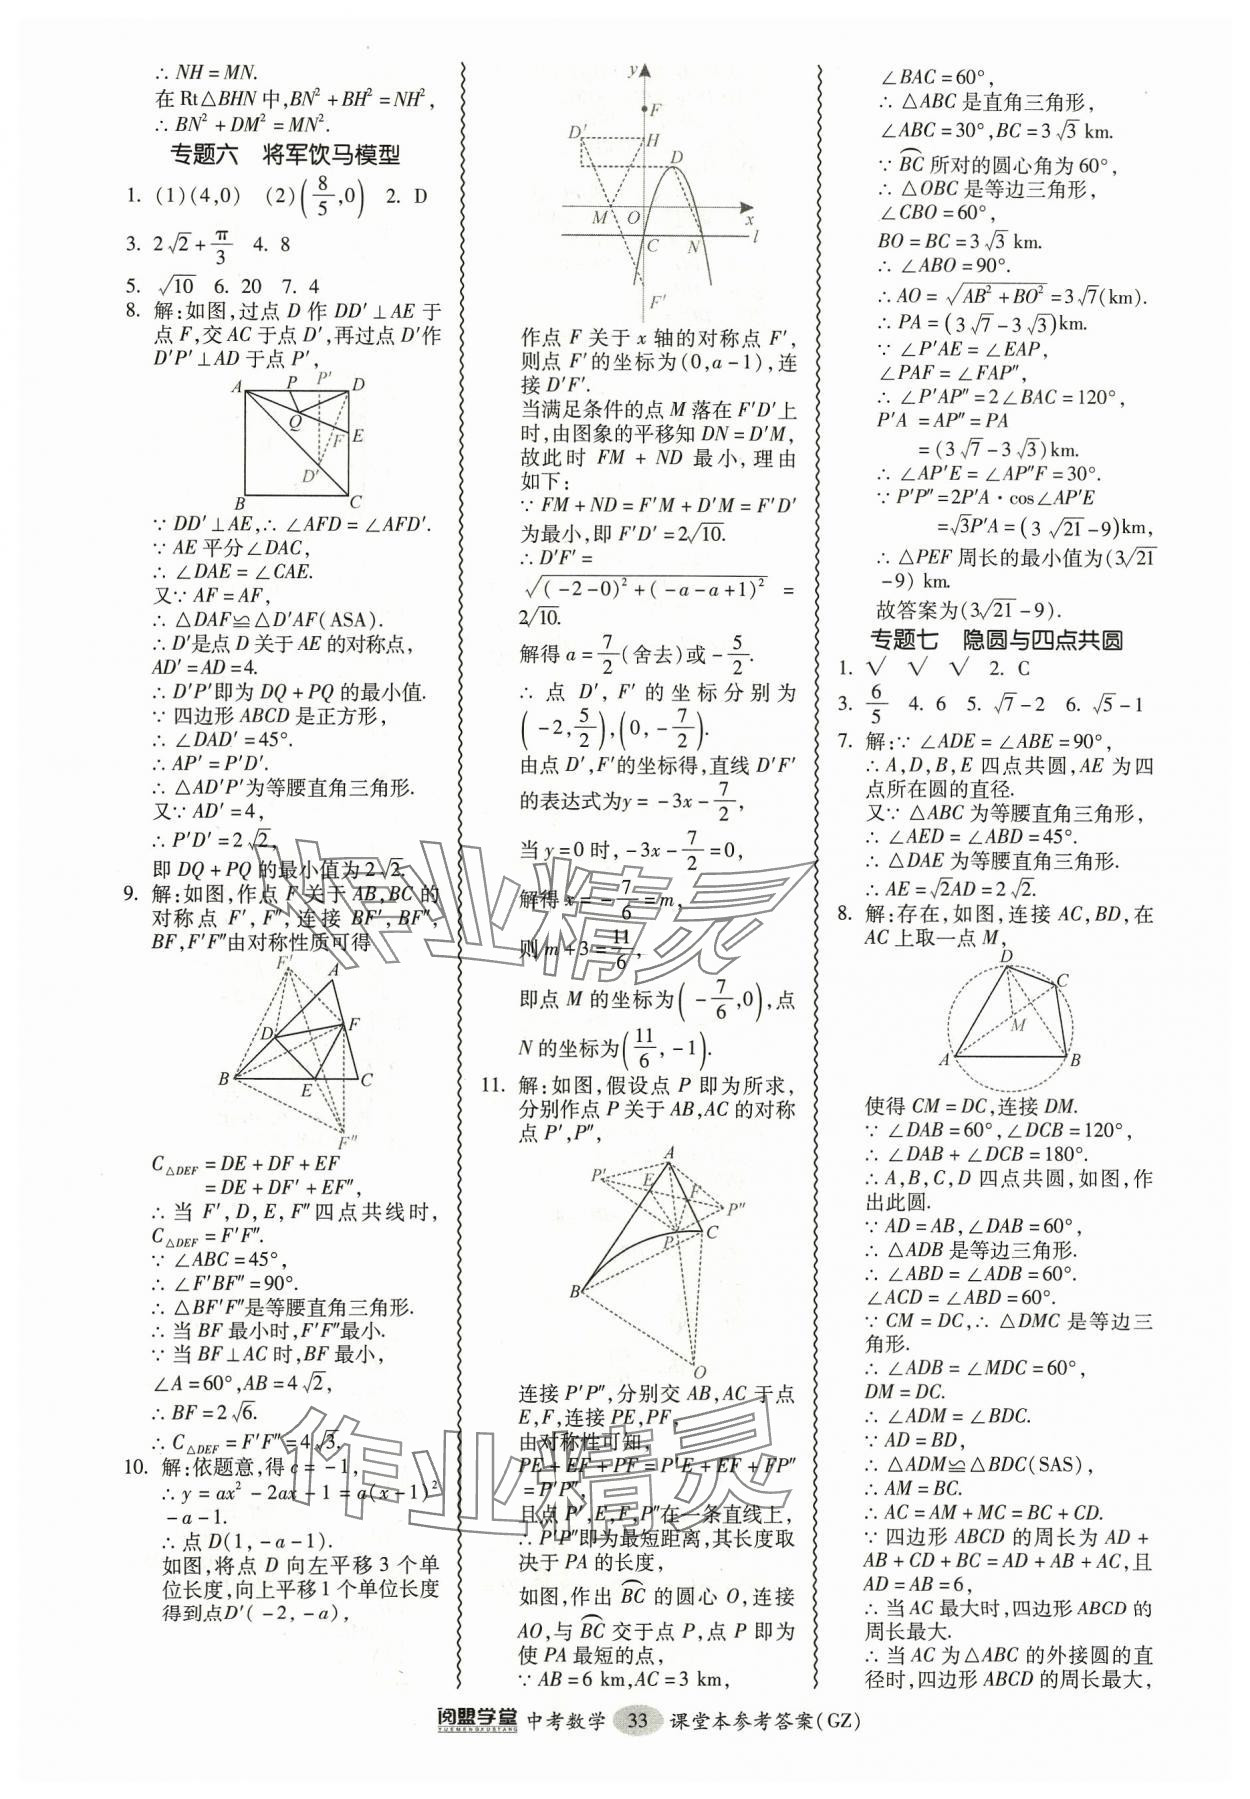 ∴ NH = MN.
在 Rt△BHN 中,BN² + BH² = NH²,
∴ BN² + DM² = MN².
专题六　将军饮马模型
1. (1)(4,0)　(2)(8/5,0)　2. D
3. 2√2 + π/3　4. 8
5. √10　6. 20　7. 4
8. 解:如图,过点 D 作 DD′⊥AE 于
点 F,交 AC 于点 D′,再过点 D′作
D′P′⊥AD 于点 P′,
A P P′ D
Q F E
D′
B C
∵ DD′⊥AE,∴ ∠AFD = ∠AFD′.
∵ AE 平分∠DAC,
∴ ∠DAE = ∠CAE.
又∵ AF = AF,
∴ △DAF≌△D′AF(ASA).
∴ D′是点 D 关于 AE 的对称点,
AD′ = AD = 4.
∴ D′P′即为 DQ + PQ 的最小值.
∵ 四边形 ABCD 是正方形,
∴ ∠DAD′ = 45°.
∴ AP′ = P′D′.
∴ △AD′P′为等腰直角三角形.
又∵ AD′ = 4,
∴ P′D′ = 2√2,
即 DQ + PQ 的最小值为 2√2.
9. 解:如图,作点 F 关于 AB,BC 的
对称点 F′,F″,连接 BF′,BF″,
BF,F′F″由对称性质可得
F′ A
D F
B E C
F″
C△DEF = DE + DF + EF
= DE + DF′ + EF″,
∴ 当 F′,D,E,F″四点共线时,
C△DEF = F′F″.
∵ ∠ABC = 45°,
∴ ∠F′BF″ = 90°.
∴ △BF′F″是等腰直角三角形.
∴ 当 BF 最小时,F′F″最小.
∵ 当 BF⊥AC 时,BF 最小,
∠A = 60°,AB = 4√2,
∴ BF = 2√6.
∴ C△DEF = F′F″ = 4√3.
10. 解:依题意,得 c = −1,
∴ y = ax² − 2ax − 1 = a(x−1)²
− a − 1.
∴ 点 D(1, −a−1).
如图,将点 D 向左平移 3 个单
位长度,向上平移 1 个单位长度
得到点D′(−2, −a),
y
F
D′ H
D
M O x
C N l
F′
作点 F 关于 x 轴的对称点 F′,
则点 F′的坐标为(0,a−1),连
接 D′F′.
当满足条件的点 M 落在 F′D′上
时,由图象的平移知 DN = D′M,
故此时 FM + ND 最小,理由
如下:
∵ FM + ND = F′M + D′M = F′D′
为最小,即 F′D′ = 2√10.
∴ D′F′ =
√((−2−0)² + (−a−a+1)²) =
2√10.
解得 a = 7/2(舍去)或 −5/2.
∴ 点 D′,F′的坐标分别为
(−2,5/2),(0,−7/2).
由点 D′,F′的坐标得,直线 D′F′
的表达式为y = −3x − 7/2,
当 y = 0 时,−3x − 7/2 = 0,
解得 x = −7/6 = m,
则 m + 3 = 11/6,
即点 M 的坐标为(−7/6,0),点
N 的坐标为(11/6,−1).
11. 解:如图,假设点 P 即为所求,
分别作点 P 关于 AB,AC 的对称
点 P′,P″,
A
P′ E F P″
P C
B
O
连接 P′P″,分别交 AB,AC 于点
E,F,连接 PE,PF,
由对称性可知,
PE + EF + PF = P′E + EF + FP″
= P′P″,
且点 P′,E,F,P″在一条直线上,
∴ P′P″即为最短距离,其长度取
决于 PA 的长度,
如图,作出 BC⌒ 的圆心 O,连接
AO,与 BC⌒ 交于点 P,点 P 即为
使 PA 最短的点,
∵ AB = 6 km,AC = 3 km,
∠BAC = 60°,
∴ △ABC 是直角三角形,
∠ABC = 30°,BC = 3√3 km.
∵ BC⌒ 所对的圆心角为 60°,
∴ △OBC 是等边三角形,
∠CBO = 60°,
BO = BC = 3√3 km.
∴ ∠ABO = 90°.
∴ AO = √(AB² + BO²) = 3√7(km).
∴ PA = (3√7 − 3√3)km.
∵ ∠P′AE = ∠EAP,
∠PAF = ∠FAP″,
∴ ∠P′AP″ = 2∠BAC = 120°,
P′A = AP″ = PA
= (3√7 − 3√3)km.
∴ ∠AP′E = ∠AP″F = 30°.
∵ P′P″ = 2P′A · cos∠AP′E
= √3P′A = (3√21 − 9)km,
∴ △PEF 周长的最小值为(3√21
− 9) km.
故答案为(3√21 − 9).
专题七　隐圆与四点共圆
1. √　√　√　2. C
3. 6/5　4. 6　5. √7 − 2　6. √5 − 1
7. 解:∵ ∠ADE = ∠ABE = 90°,
∴ A,D,B,E 四点共圆,AE 为四
点所在圆的直径.
又∵ △ABC 为等腰直角三角形,
∴ ∠AED = ∠ABD = 45°.
∴ △DAE 为等腰直角三角形.
∴ AE = √2AD = 2√2.
8. 解:存在,如图,连接 AC,BD,在
AC 上取一点 M,
D C
M
A B
使得 CM = DC,连接 DM.
∵ ∠DAB = 60°,∠DCB = 120°,
∴ ∠DAB + ∠DCB = 180°.
∴ A,B,C,D 四点共圆,如图,作
出此圆.
∵ AD = AB,∠DAB = 60°,
∴ △ADB 是等边三角形.
∴ ∠ABD = ∠ADB = 60°.
∠ACD = ∠ABD = 60°.
∵ CM = DC,∴ △DMC 是等边三
角形.
∴ ∠ADB = ∠MDC = 60°,
DM = DC.
∴ ∠ADM = ∠BDC.
∵ AD = BD,
∴ △ADM≌△BDC(SAS),
∴ AM = BC.
∴ AC = AM + MC = BC + CD.
∵ 四边形 ABCD 的周长为 AD +
AB + CD + BC = AD + AB + AC,且
AD = AB = 6,
∴ 当 AC 最大时,四边形 ABCD 的
周长最大.
∴ 当 AC 为△ABC 的外接圆的直
径时,四边形 ABCD 的周长最大,
作业精灵
作业精灵
阅盟学堂 YUEMENGXUETANG 中考数学 33 课堂本参考答案(GZ)